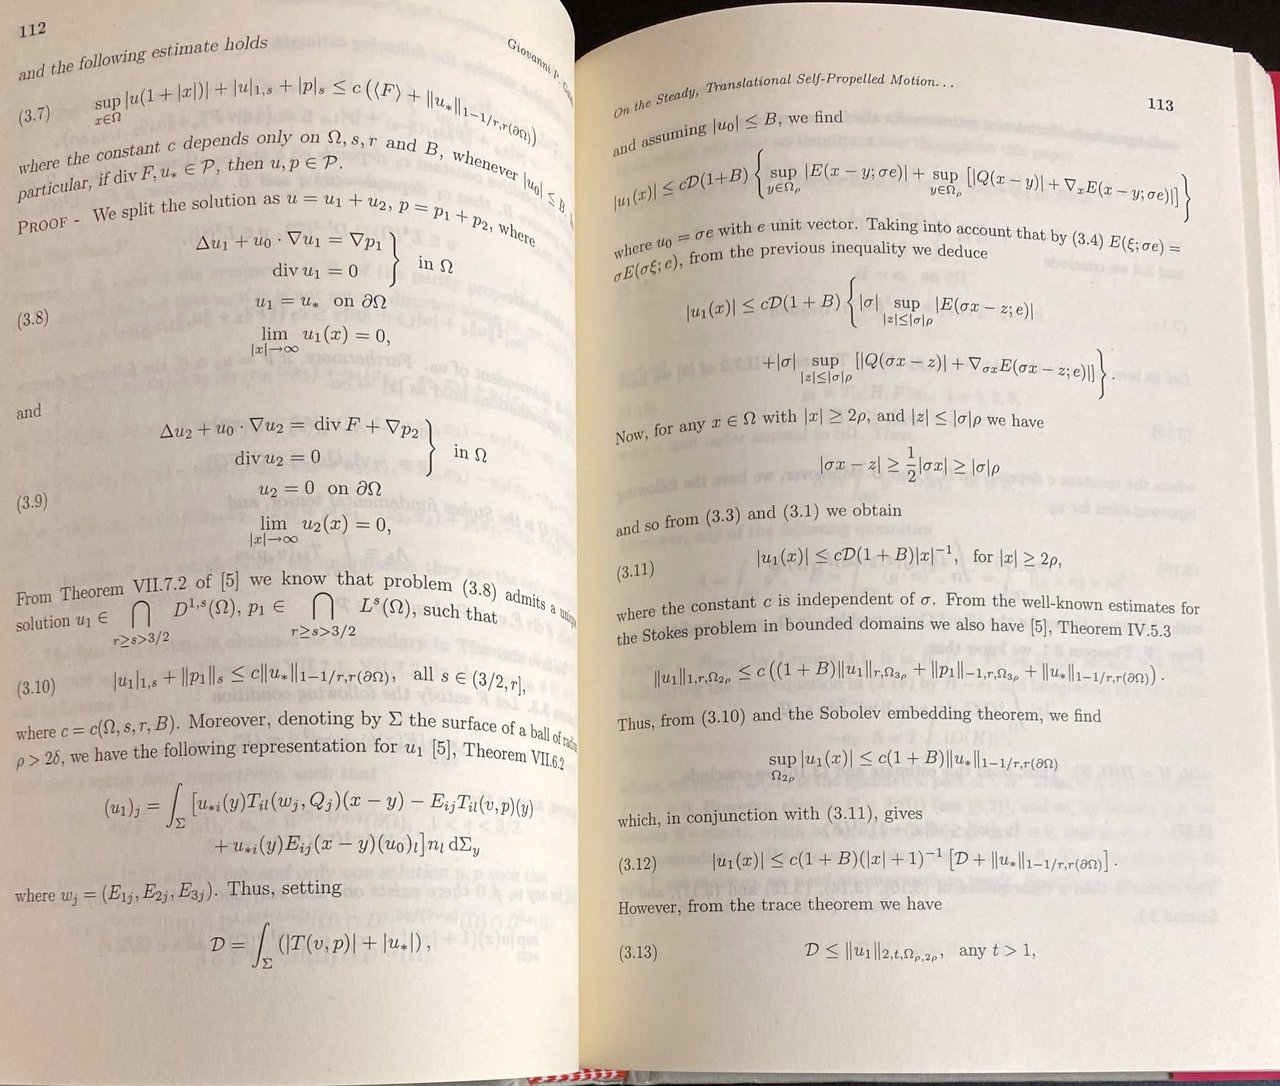 112
Giovanni P.
and the following estimate holds
(3.7) sup_{x∈Ω} |u(1 + |x|)| + |u|_{1,s} + |p|_s ≤ c (⟨F⟩ + ‖u_*‖_{1−1/r,r(∂Ω)})
where the constant c depends only on Ω, s, r and B, whenever |u_0| ≤ B.
particular, if div F, u_* ∈ 𝒫, then u, p ∈ 𝒫.
PROOF - We split the solution as u = u_1 + u_2, p = p_1 + p_2, where
Δu_1 + u_0 · ∇u_1 = ∇p_1
div u_1 = 0 } in Ω
(3.8) u_1 = u_* on ∂Ω
lim_{|x|→∞} u_1(x) = 0,
and
Δu_2 + u_0 · ∇u_2 = div F + ∇p_2
div u_2 = 0 } in Ω
(3.9) u_2 = 0 on ∂Ω
lim_{|x|→∞} u_2(x) = 0,
From Theorem VII.7.2 of [5] we know that problem (3.8) admits a
solution u_1 ∈ ⋂_{r≥s>3/2} D^{1,s}(Ω), p_1 ∈ ⋂_{r≥s>3/2} L^s(Ω), such that
(3.10) |u_1|_{1,s} + ‖p_1‖_s ≤ c‖u_*‖_{1−1/r,r(∂Ω)}, all s ∈ (3/2, r],
where c = c(Ω, s, r, B). Moreover, denoting by Σ the surface of a ball of
ρ > 2δ, we have the following representation for u_1 [5], Theorem VII.6.2
(u_1)_j = ∫_Σ [u_{*i}(y)T_{il}(w_j, Q_j)(x − y) − E_{ij}T_{il}(v, p)(y)
+ u_{*i}(y)E_{ij}(x − y)(u_0)_l] n_l dΣ_y
where w_j = (E_{1j}, E_{2j}, E_{3j}). Thus, setting
𝒟 = ∫_Σ (|T(v, p)| + |u_*|),
On the Steady, Translational Self-Propelled Motion...
113
and assuming |u_0| ≤ B, we find
|u_1(x)| ≤ c𝒟(1+B) { sup_{y∈Ω_ρ} |E(x − y; σe)| + sup_{y∈Ω_ρ} [|Q(x − y)| + ∇_xE(x − y; σe)|] }
where u_0 = σe with e unit vector. Taking into account that by (3.4) E(ξ; σe) =
σE(σξ; e), from the previous inequality we deduce
|u_1(x)| ≤ c𝒟(1 + B) { |σ| sup_{|z|≤|σ|ρ} |E(σx − z; e)|
+|σ| sup_{|z|≤|σ|ρ} [|Q(σx − z)| + ∇_{σx}E(σx − z; e)|] }.
Now, for any x ∈ Ω with |x| ≥ 2ρ, and |z| ≤ |σ|ρ we have
|σx − z| ≥ 1/2 |σx| ≥ |σ|ρ
and so from (3.3) and (3.1) we obtain
(3.11) |u_1(x)| ≤ c𝒟(1 + B)|x|^{−1}, for |x| ≥ 2ρ,
where the constant c is independent of σ. From the well-known estimates for
the Stokes problem in bounded domains we also have [5], Theorem IV.5.3
‖u_1‖_{1,r,Ω_{2ρ}} ≤ c ((1 + B)‖u_1‖_{r,Ω_{3ρ}} + ‖p_1‖_{−1,r,Ω_{3ρ}} + ‖u_*‖_{1−1/r,r(∂Ω)}).
Thus, from (3.10) and the Sobolev embedding theorem, we find
sup_{Ω_{2ρ}} |u_1(x)| ≤ c(1 + B)‖u_*‖_{1−1/r,r(∂Ω)}
which, in conjunction with (3.11), gives
(3.12) |u_1(x)| ≤ c(1 + B)(|x| + 1)^{−1} [𝒟 + ‖u_*‖_{1−1/r,r(∂Ω)}].
However, from the trace theorem we have
(3.13) 𝒟 ≤ ‖u_1‖_{2,t,Ω_{ρ,2ρ}}, any t > 1,